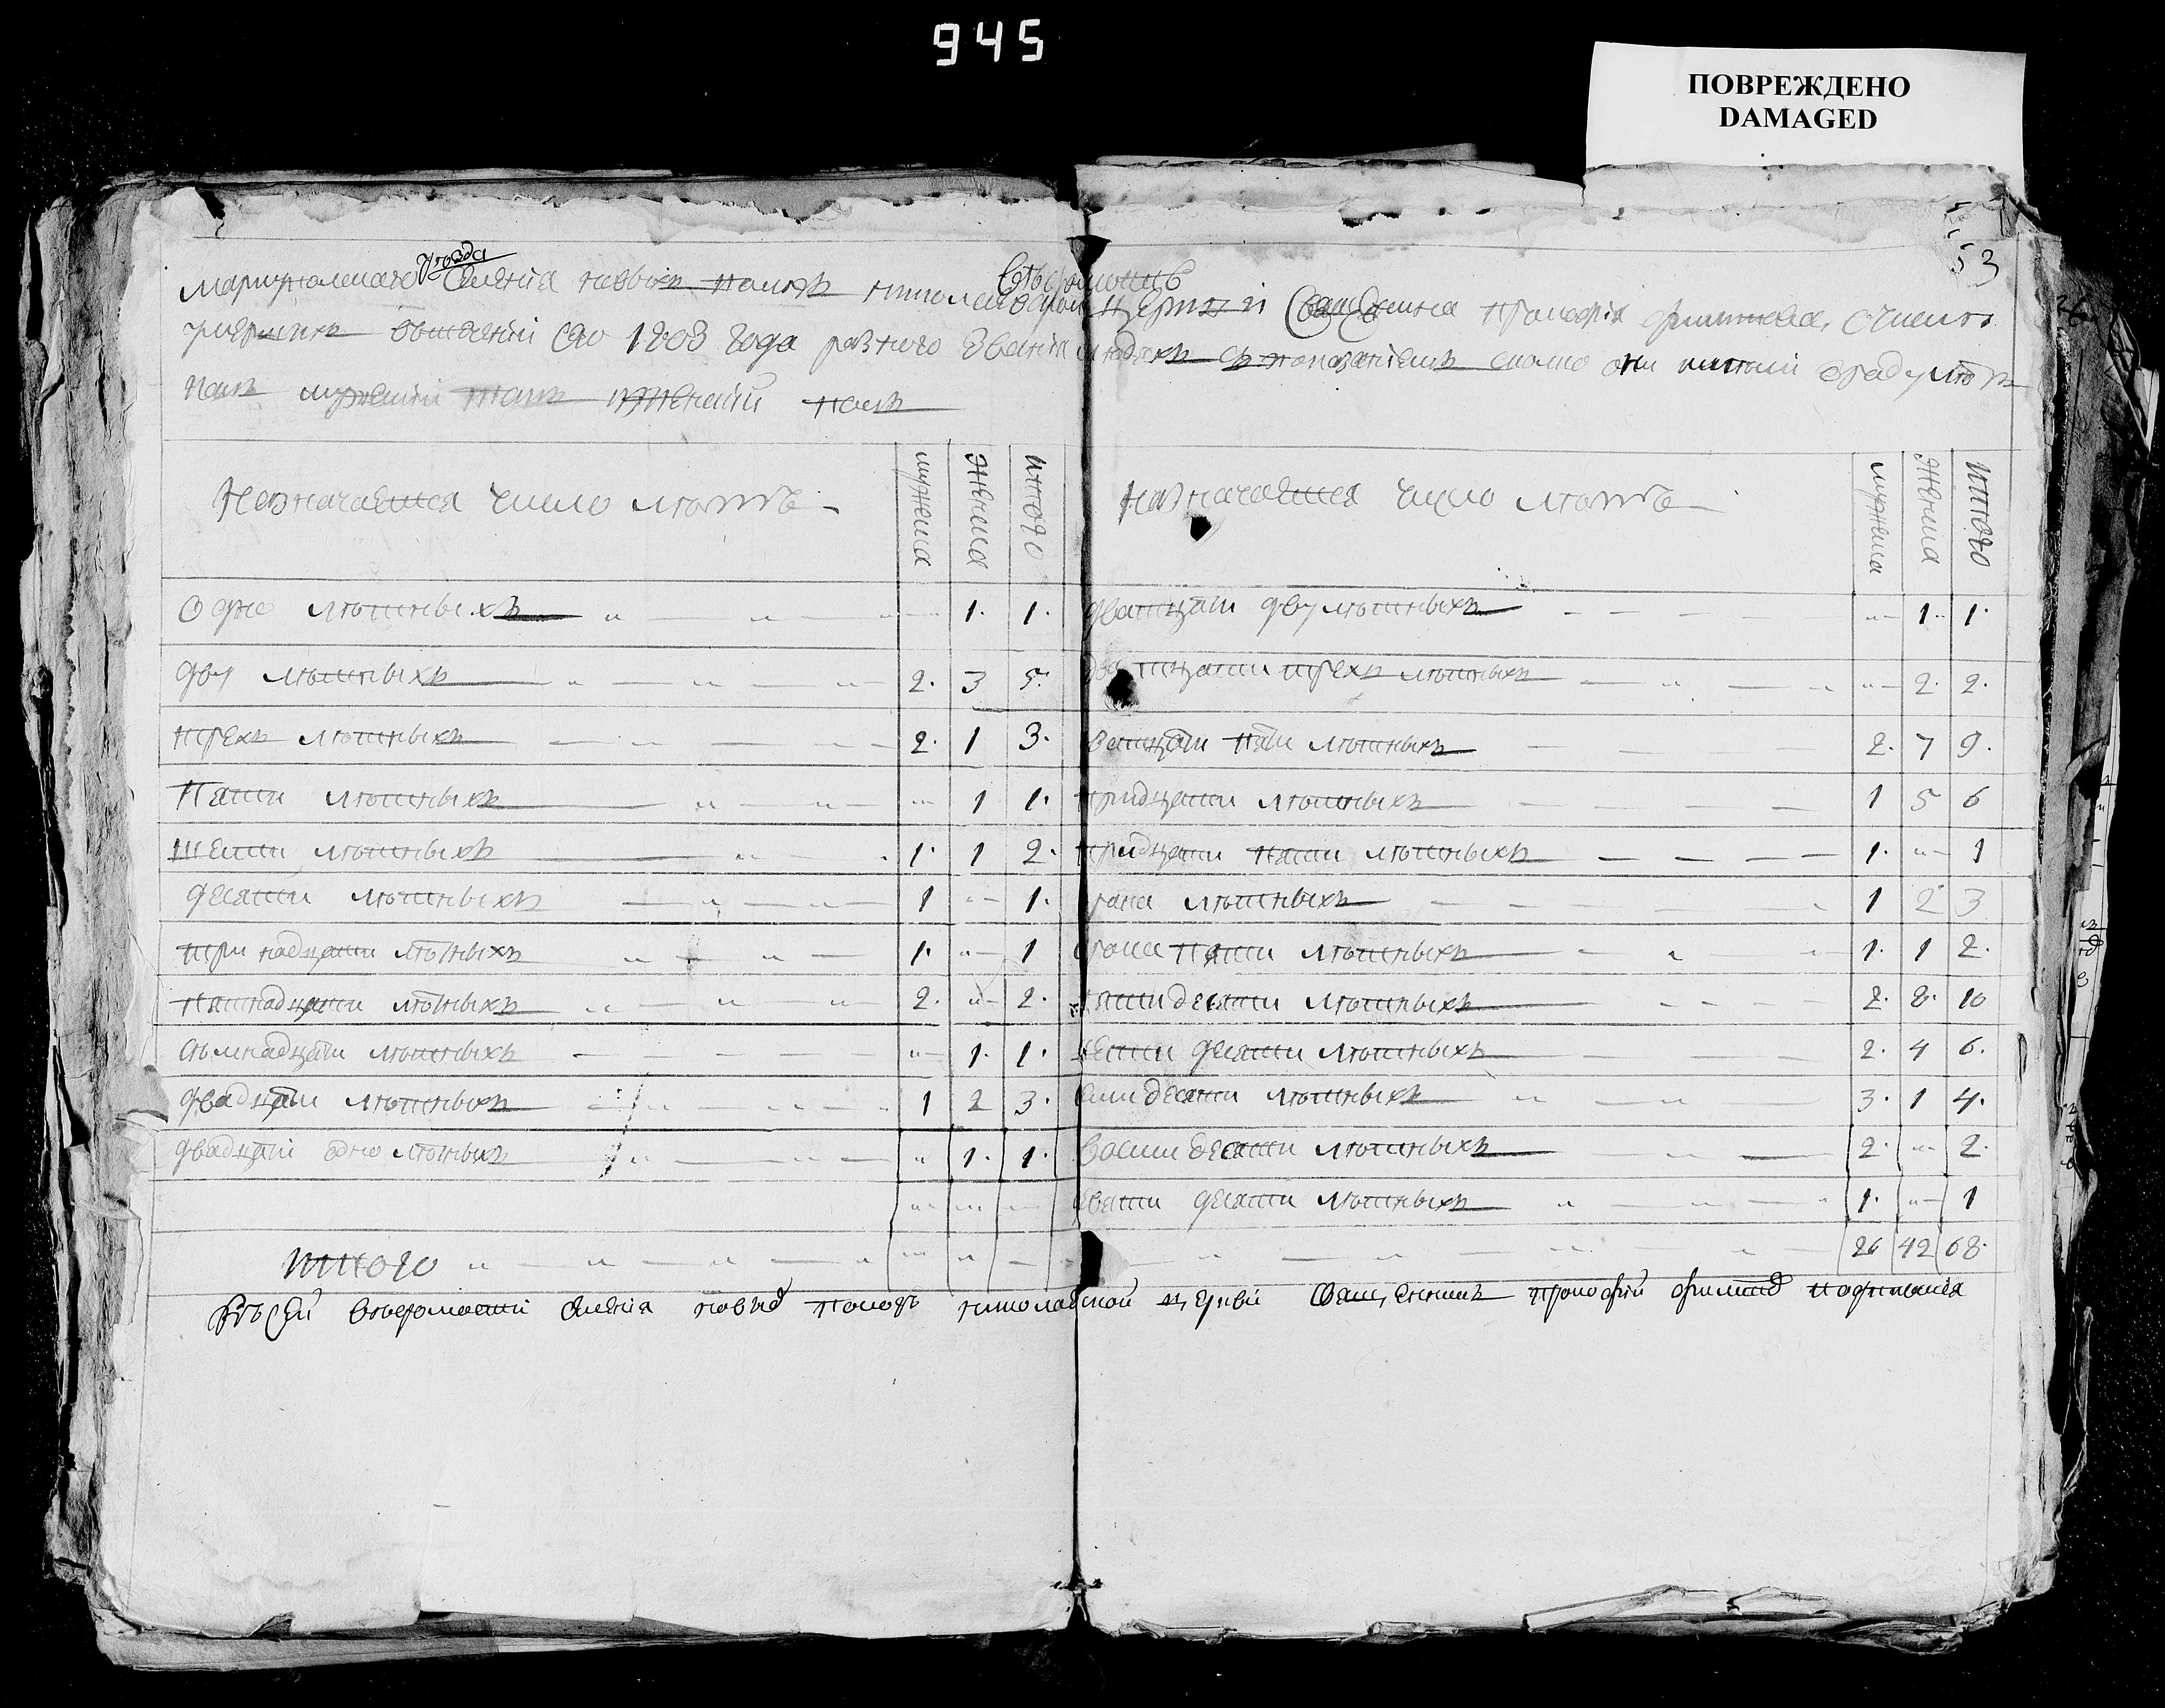 945
ПОВРЕЖДЕНО
DAMAGED
53
уезда
Ведомость
Мариупольскаго Селения новыхъ николаевской церкви Священника Прокофия о числе
умершихъ сего 1808 года разного звания людяхъ съ показаниемъ сколко они жытий отроду летъ
какъ мужеский такъ и женский полъ
Назначается число летъ мужеска женска итого
Одно летныхъ 1. 1.
дву летныхъ 2. 3 5.
трехъ летныхъ 2. 1 3.
пяти летныхъ 1 1.
шести летныхъ 1. 1 2.
десяти летныхъ 1 1.
тринадцати летныхъ 1. 1
пятнадцати летныхъ 2. 2.
семнадцати летныхъ 1. 1.
двадцати летныхъ 1 2 3.
двадцати одно летныхъ 1. 1.
итого
Назначается число летъ мужеска женска итого
дватцати двулетныхъ 1. 1.
дватцати трехъ летныхъ 2. 2.
ватцати пяти летныхъ 2. 7 9.
тридцати летныхъ 1 5 6
тридцати пяти летныхъ 1. 1
рока летныхъ 1 2 3
рока пяти летныхъ 1. 1 2.
пятидесяти летныхъ 2. 8. 10
шести десяти летныхъ 2. 4 6.
семидесяти летныхъ 3. 1 4.
восмидесяти летныхъ 2. 2.
евяти десяти летныхъ 1. 1
26 42 68.
Къ сей ведомости селения николаевской церкви Священникъ прокофий подписался